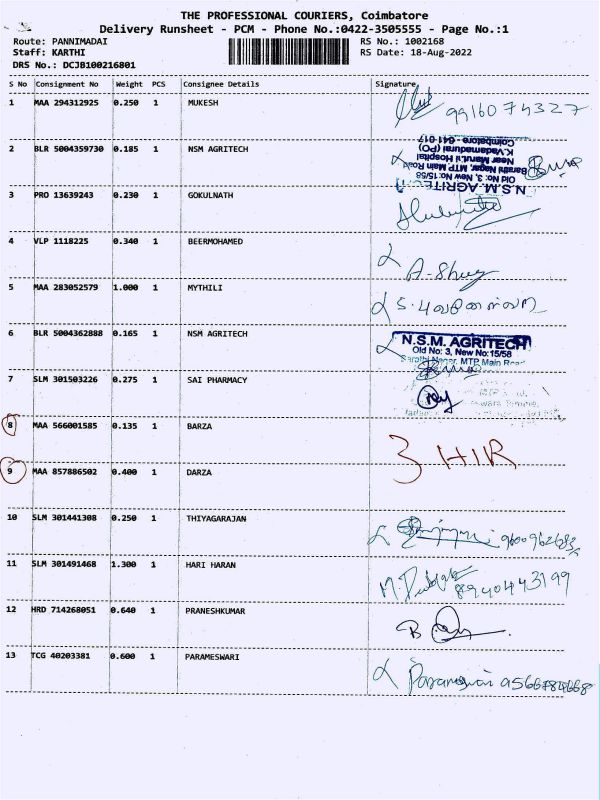 THE PROFESSIONAL COURIERS, Coimbatore
Delivery Runsheet - PCM - Phone No.:0422-3505555 - Page No.:1
Route: PANNIMADAI RS No.: 1002168
Staff: KARTHI RS Date: 18-Aug-2022
DRS No.: DCJB100216801
S No Consignment No Weight PCS Consignee Details Signature
1 MAA 294312925 0.250 1 MUKESH 9916074327
2 BLR 5004359730 0.185 1 NSM AGRITECH
N.S.M. AGRITECH
Old No. 3, New No: 15/58
Barathi Nagar, MTP, Main Road
Near Maruti Hospital
K.Vadamadurai (PO)
Coimbatore - 641 017
3 PRO 13639243 0.230 1 GOKULNATH
4 VLP 1118225 0.340 1 BEERMOHAMED
5 MAA 283052579 1.000 1 MYTHILI
6 BLR 5004362888 0.165 1 NSM AGRITECH
N.S.M. AGRITECH
Old No: 3, New No:15/58
Barathi Nagar, MTP Main Road
7 SLM 301503226 0.275 1 SAI PHARMACY
8 MAA 566001585 0.135 1 BARZA
3 HIR
9 MAA 857886502 0.400 1 DARZA
10 SLM 301441308 0.250 1 THIYAGARAJAN
11 SLM 301491468 1.300 1 HARI HARAN 8940443199
12 HRD 714268051 0.640 1 PRANESHKUMAR
13 TCG 40203381 0.600 1 PARAMESWARI